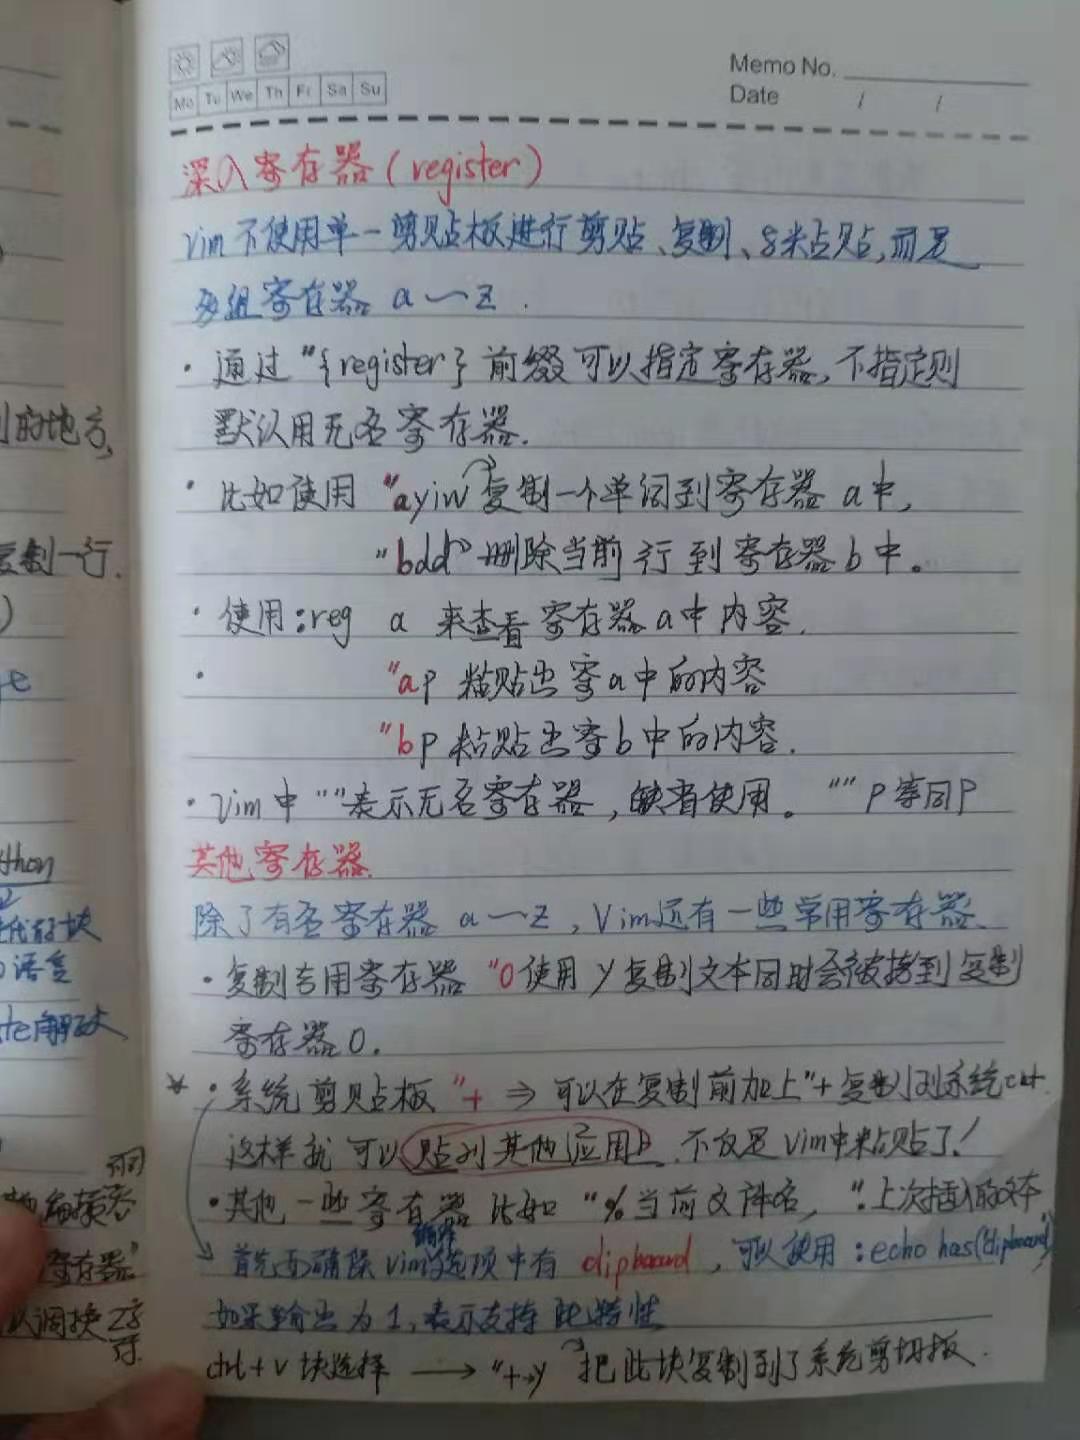 的地方,
复制一行.
thon
语言
寄存器"
Memo No.
Date / /
Mo Tu We Th Fr Sa Su
深入寄存器(register)
Vim不使用单一剪贴板进行剪贴、复制、粘贴,而是
多组寄存器 a—z.
· 通过 "{register} 前缀可以指定寄存器,不指定则
默认用无名寄存器.
· 比如使用 "ayiw 复制一个单词到寄存器 a中,
"bdd 删除当前行到寄存器b中。
· 使用:reg a 来查看寄存器a中内容.
· "ap 粘贴出寄a中的内容
"bp 粘贴出寄b中的内容.
· Vim中 "" 表示无名寄存器,缺省使用。 ""p等同p
其他寄存器.
除了有名寄存器 a—z,Vim还有一些常用寄存器.
· 复制专用寄存器 "0 使用y复制文本同时会被拷到复制
寄存器0.
· 系统剪贴板 "+ ⇒ 可以在复制前加上"+复制到系统
这样就可以贴到其他应用中.不仅是Vim中粘贴了!
· 其他一些寄存器 比如 "%当前文件名, ".上次插入的文本
首先要确保vim编译选项中有 clipboard ,可以使用 :echo has('clipboard')
如果输出为1,表示支持此特性
ctrl+v 块选择 → "+y 把此块复制到了系统剪切板.